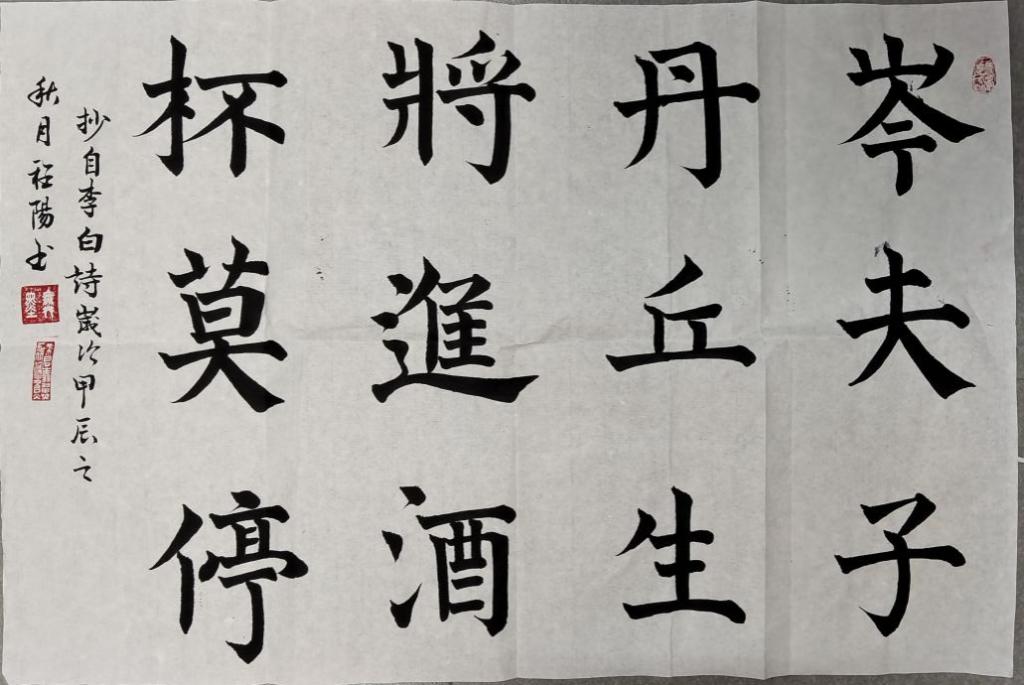 岑夫子
丹丘生
將進酒
杯莫停
抄自李白詩歲次甲辰之
秋月程陽书